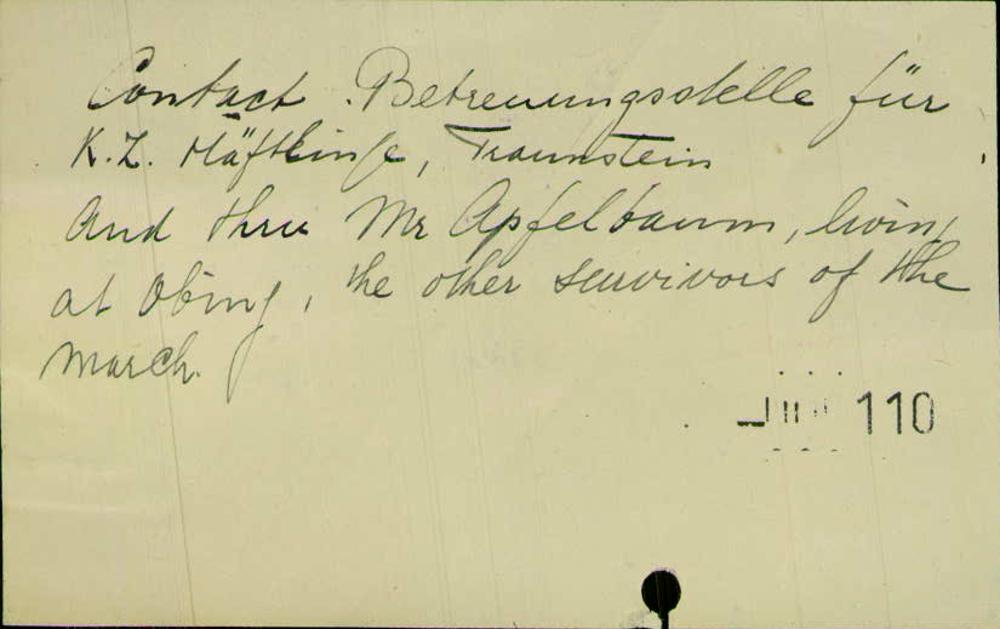 Contact Betreuungsstelle für
K.Z. Häftlinge, Traunstein
and thru Mr Apfelbaum, living
at Obing, the other survivors of the
march.
110